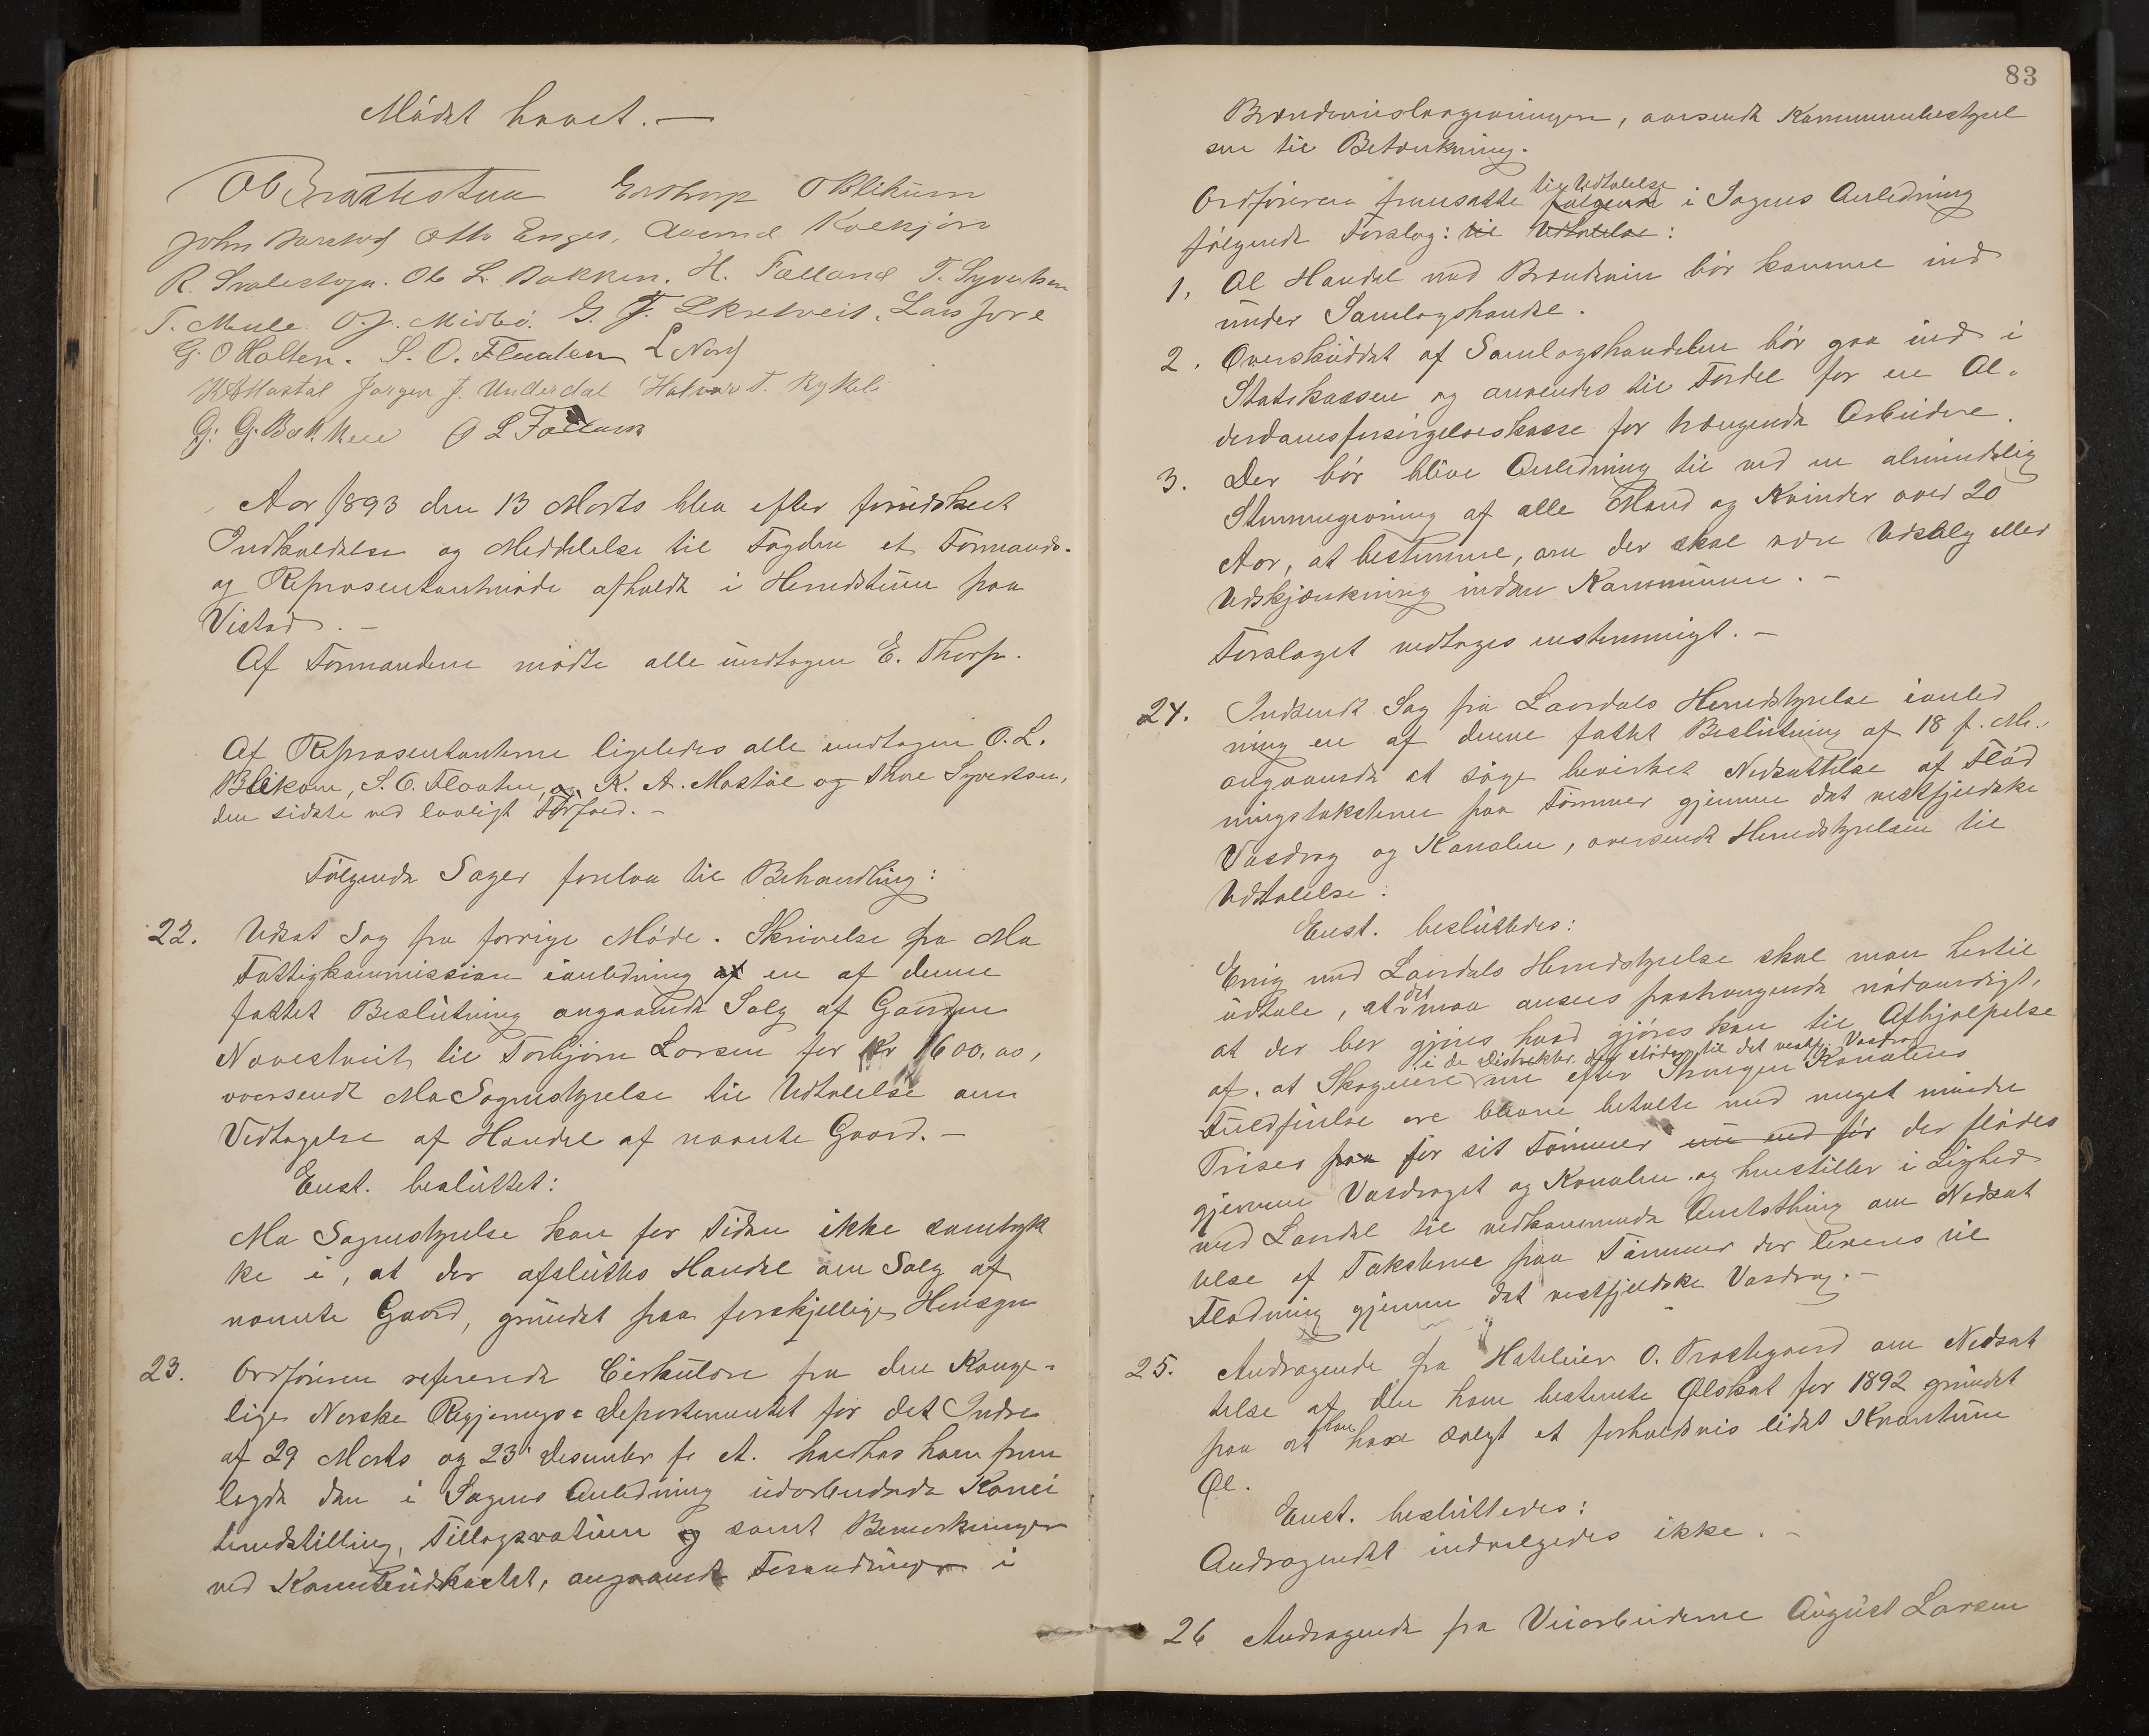 Mödet hævet. —
Erstrop O Blikum
John Otto Enger, Aamund
R. Ole L. Bakken. H. Fælland T. Syvertsen
T. Mule. O. J. Midbö. G. T. Skretveit. Lars Jore
G. O Holten. S. O. Flaaten L Nord
K A Mastöl Jørgen J. Underdal Halvor T. Rykel
G. G. Bakken O L Fælland
Aar 1893 den 13 Marts blev efter forudskeet
Indkaldelse og Meddelelse til Fogden et Formands-
og Repræsentantmöde afholdt i Herredstuen paa
Vistad. —
Af Formændene mödte alle undtagen E. Thorp.
Af Repræsentanterne ligeledes alle undtagen O. L.
Blikom, S. O. Flaaten, og K. A. Mastöl og Thore Syvertsen,
den sidste ved lovligt Forfald. —
Fölgende Sager forelaa til Behandling:
22. Udsat Sag fra forrige Möde. Skrivelse fra Mo
Fattigkommission ianledning af en af denne
fattet Beslutning angaaende Salg af Gaarden
Novestveit til Torbjörn Larsen for Kr 1600,00,
oversendt Mo Sognestyrelse til Udtalelse om
Vedtagelse af Handel af nævnte Gaard. —
Enst. besluttet:
Mo Sognestyrelse kan for Tiden ikke samtyk
ke i, at der afsluttes Handel om Salg af
nævnte Gaard, grundet paa forskjellige Hensyn
23. Ordföreren refererede Cirkulære fra den Konge-
lige Norske Regjerings-Departementet for det Indre
af 29 Marts og 23 Desember f. A. hvorhos han frem
lagde den i Sagens Anledning udarbeidede Komi
teindstilling, Tillægsvotum og samt Bemerkninger
ved Komiteudkastet, angaaende Forandringer i
83
Brændevinslovgivningen, oversendt Kommunebestyrel
sen til Betænkning.
til Udtalelse
Ordföreren fremsatte fölgende i Sagens Anledning
fölgende Forslag: til Udtalelse:
1. Al Handel med Brændevin bör komme ind
under Samlagshandel.
2. Overskuddet af Samlagshandelen bör gaa ind i
Statskassen og anvendes til Fordel for en Al-
derdomsforsörgelseskasse for trængende Arbeidere.
3. Der bör blive Anledning til ved en almindelig
Stemmegivning af alle Mænd og Kvinder over 20
Aar, at bestemme, om der skal være Udsalg eller
Udskjænkning inden Kommunen. —
Forslaget vedtages enstemmigt. —
24. Indsendt Sag fra Laurdals Herredstyrelse ianled
ning en af denne fattet Beslutning af 18 f. M.
angaaende at söge bevirket Nedsættelse af Flöd
ningstaksterne paa Tömmer gjennem det vestfjeldske
Vasdrag og Kanalen, oversendt Herredstyrelsen til
Udtalelse:
Enst. besluttedes:
Enig med Laurdals Herredstyrelse skal man hertil
udtale, at det maa ansees paatrængende nödvendigt,
at der bör gjöres hvad gjöres kan til Afhjælpelse
i de Distrikter, der stöder til det vestfj. Vasdrag
af, at Skogeierne nu efter Kanalens
Fuldförelse ere blevne betalte med meget mindre
Priser paa for sit Tömmer nu end för der flödes
gjennem Vasdraget og Kanalen, og henstiller i Lighed
med Laurdal til vedkommende Amtsthing om Nedsæt
telse af Taksterne paa Tömmer der leveres til
Flödning gjennem det vestfjeldske Vasdrag. —
25. Andragende fra Hoteleier O. Præstegaard om Nedsæt
telse af den ham bestemte Ölskat for 1892 grundet
paa at han have solgt et forholdsvis lidet Kvantum
Øl.
Enst. besluttedes:
Andragendet indvilgedes ikke. —
26 Andragende fra Veiarbeiderne August Larsen